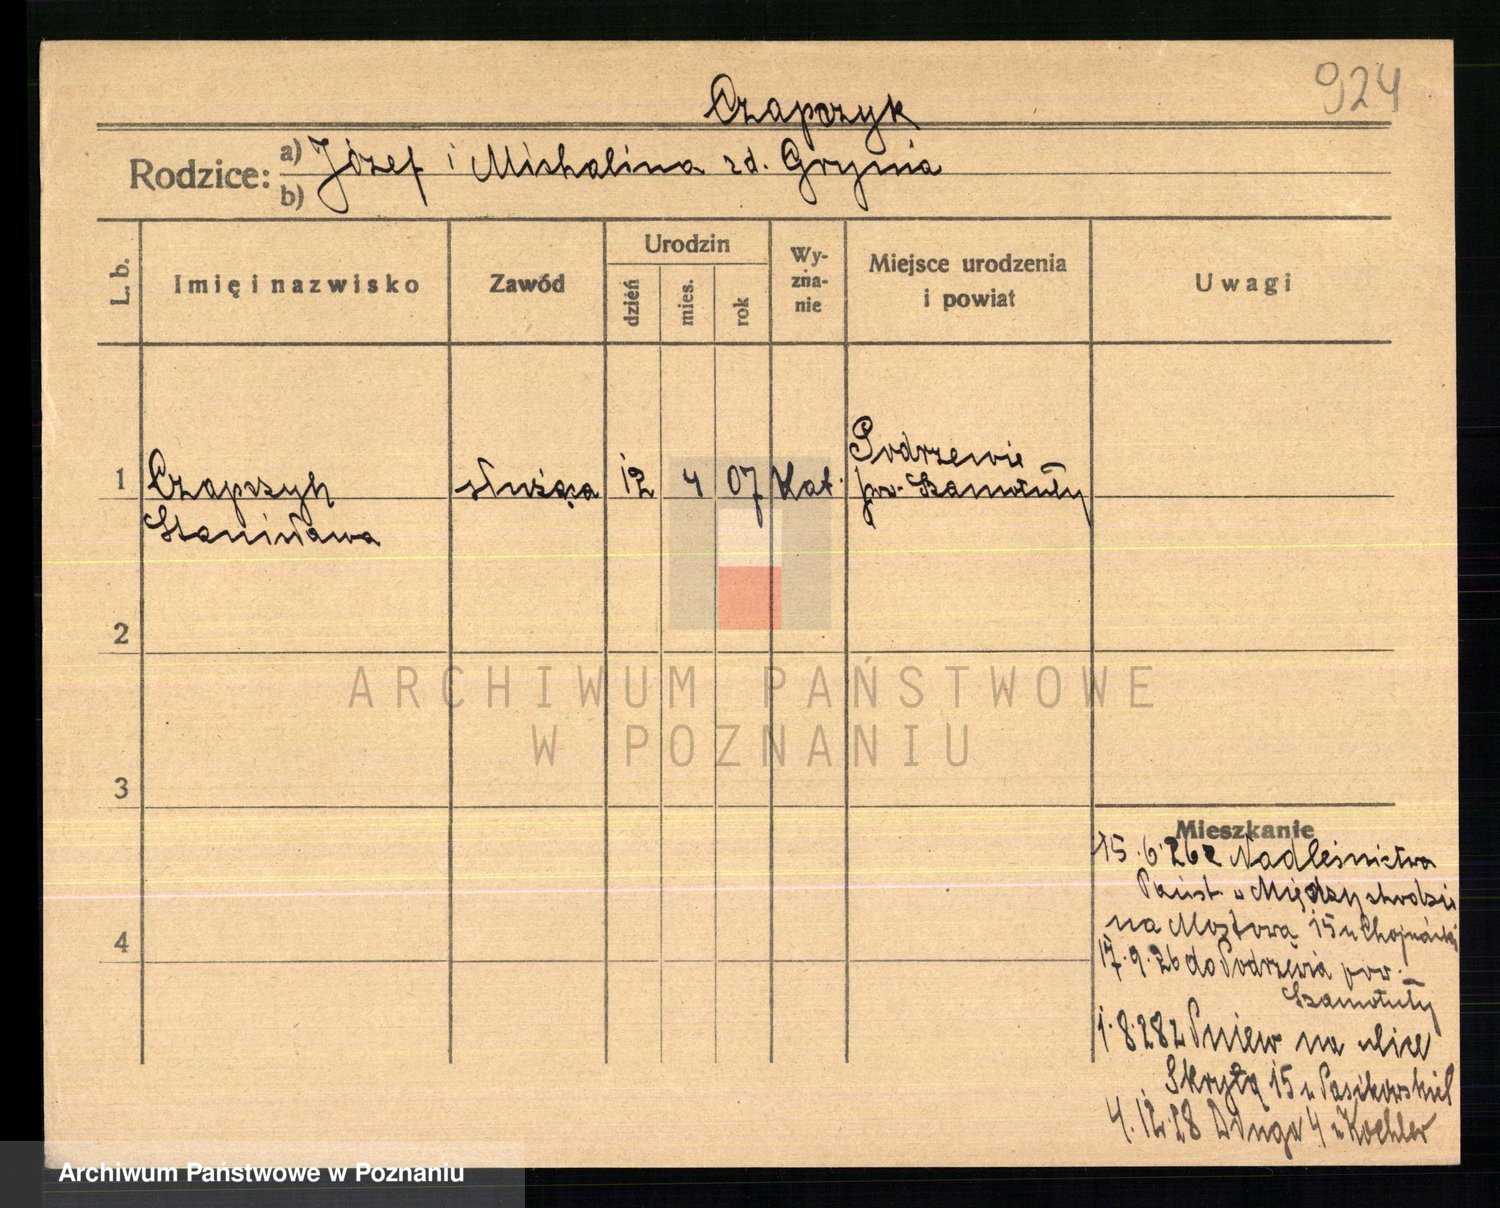 924
Czapczyk
Rodzice: a) Józef i Michalina zd. Grynia
b)
L. b.
Imię i nazwisko
Zawód
Urodzin
dzień
mies.
rok
Wy-
zna-
nie
Miejsce urodzenia
i powiat
Uwagi
1
Czapczyk
Stanisława
służąca
12
4
07
Kat.
Podrzewie
pow. Szamotuły
2
3
4
Mieszkanie
15.6.26 z Nadleśnictwa
Państ. w Międzychodzie
na Mostową 15 u Chojnacki
17.9.26 do Podrzewia pow.
Szamotuły
1.8.28 z Pniew na ulice
Skrytą 15 u Pasikowskiel
4.12.28 Długa 4 u Kochler
ARCHIWUM PAŃSTWOWE
W POZNANIU
Archiwum Państwowe w Poznaniu